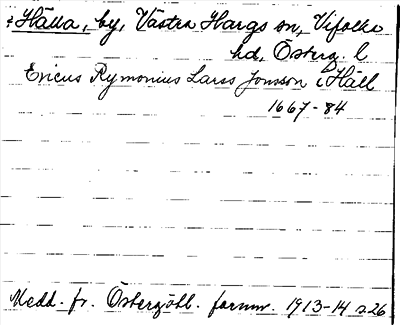 Hälla, by, Västra Hargs sn, Vifolka
hd, Österg. l
Ericus Rymonius Larss Jonsson i Häll
1667-84
Medd. fr. Östergötl. fornm. 1913-14 s 26